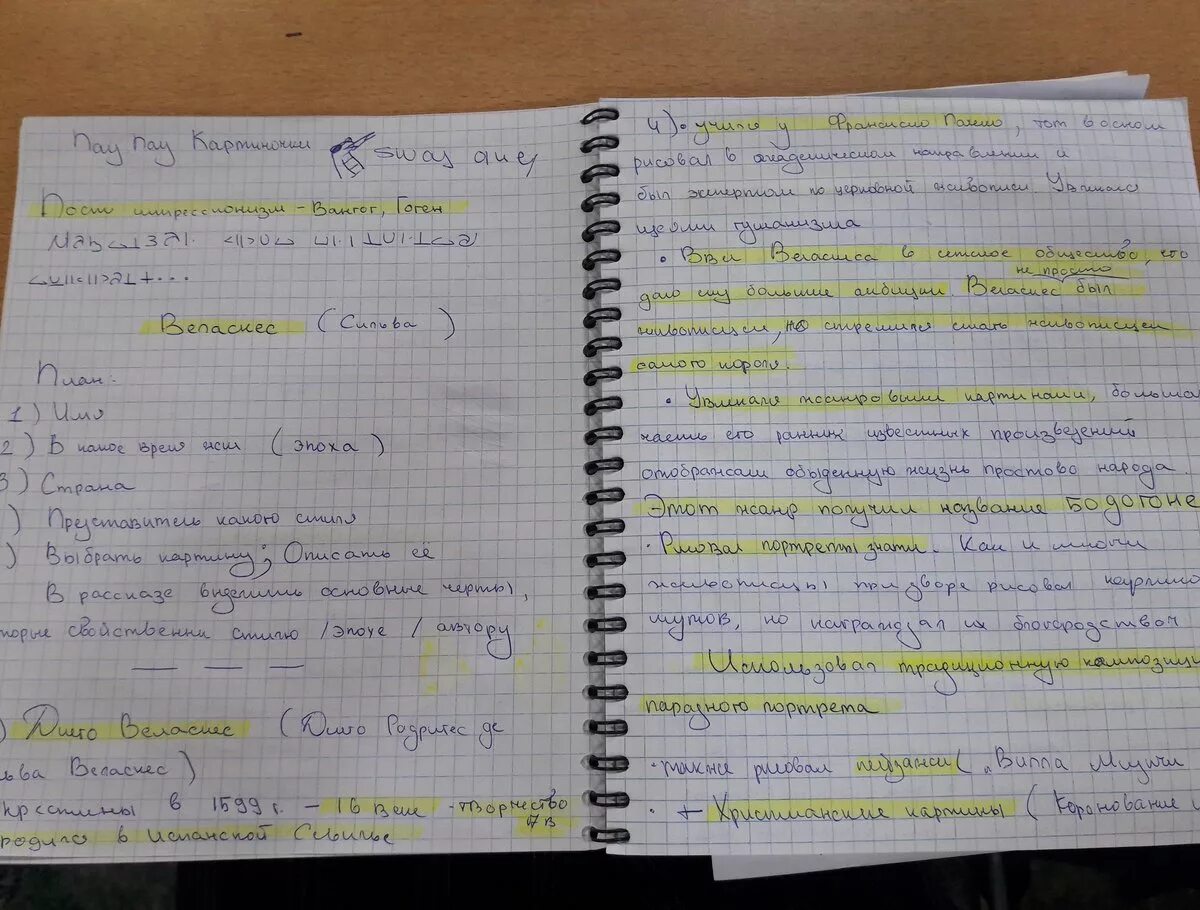 Пау Пау Картиночки
sway
Пост импрессионизм - Вангог, Гоген
Веласкес (Сильва)
План:
1) Имя
2) В какое время жил (эпоха)
3) Страна
) Представитель какого стиля
) Выбрать картину; Описать её
В рассказе выделить основные черты,
торые свойственны стилю /эпохе /автору
) Диего Веласкес (Диего Родригес де
льва Веласкес)
крестины в 1599 г. - 16 веке - творчество
17 в
родился в испанской Севилье
4) • учился у Франсиско , тот в основном
рисовал в академическом направлении и
был экспертом по церковной живописи. Увлекался
идеями гуманизма
• Ввел Веласкеса в светское общество, что
не просто
дало ему большие амбиции. Веласкес был
живописцем, но стремился стать живописцем
самого короля.
• Увлекался жанровыми картинами, большая
часть его ранних известных произведений
отображали обыденную жизнь простово народа.
Этот жанр получил название Бодогоне
• Рисовал портреты знати. Как и многи
живописцы при дворе рисовал карлико
шутов, но награждал их благородством
Использовал традиционную композици
парадного портрета
• также рисовал пейзажи („Вилла Медичи
• + Христианские картины (Коронование